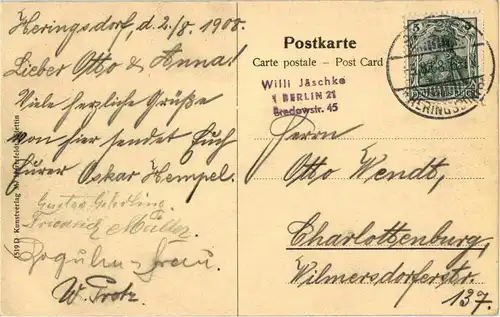 Heringsdorf, d. 2/8. 1908.
Lieber Otto & Anna!
Viele herzliche Grüße
von hier sendet Euch
Eurer Oskar Hempel.
Friedrich Müller
Frau
W. Protz
Postkarte
Carte postale – Post Card
Willi Jäschke
BERLIN 21
Bredowstr. 45
5
5
HERINGSDORF
Herrn
Otto Wendt,
Charlottenburg,
Wilmersdorferstr.
137.